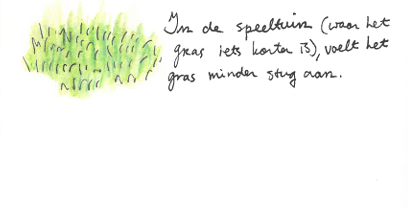 In de speeltuin (waar het
gras iets korter is), voelt het
gras minder stug aan.